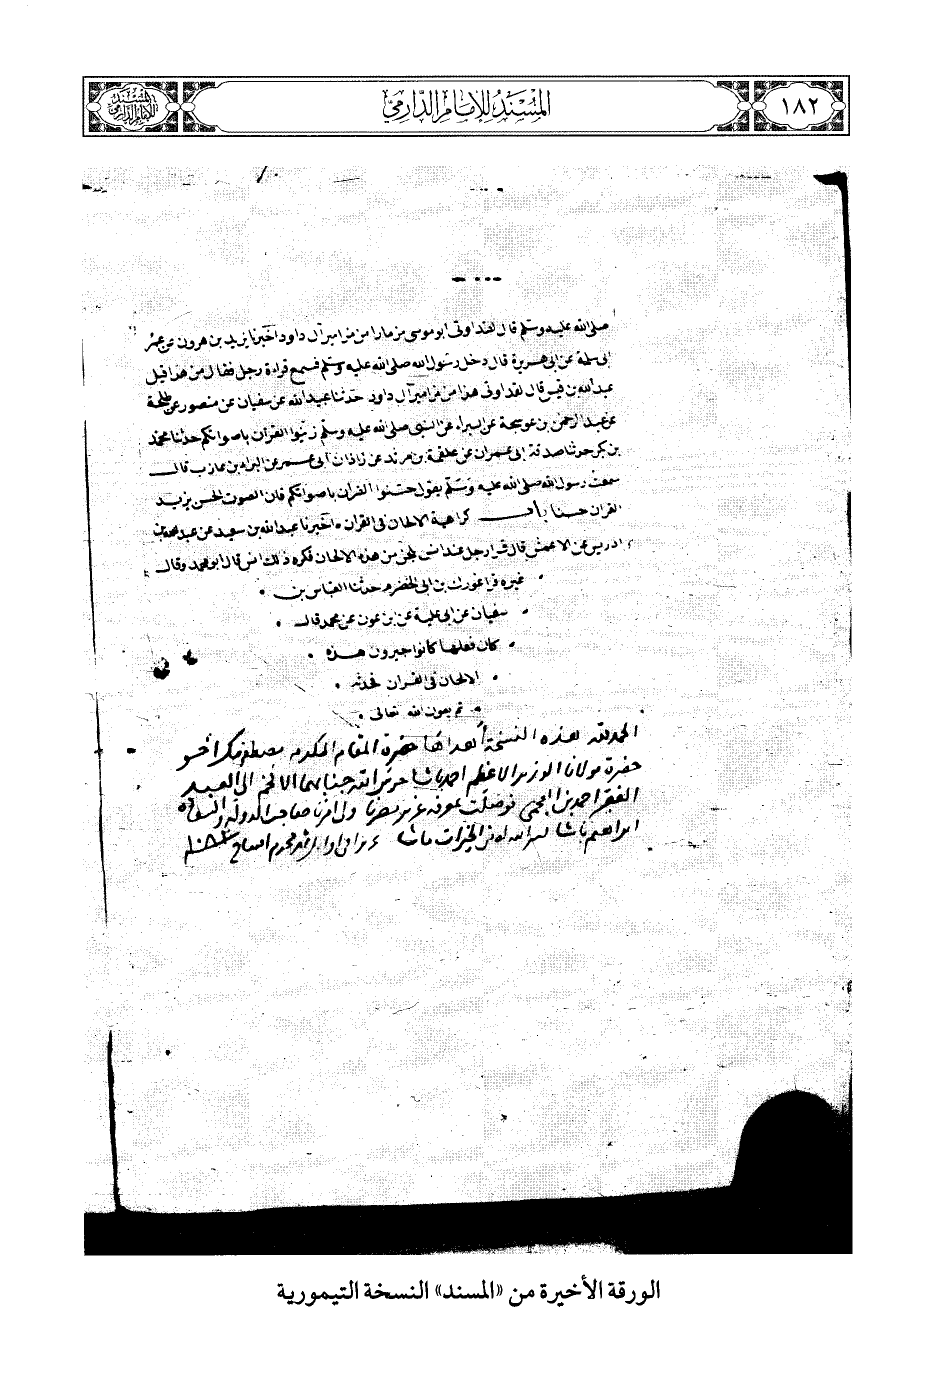 ١٨٢
المسند للإمام الدارمي
المسند للإمام الدارمي
صلى الله عليه وسلم قال لقد اوتى ابو موسى مزمارا من مزامير آل داود اخبرنا يزيد بن هرون عن
ابى سلمة عن ابى هريرة قال دخل رسول الله صلى الله عليه وسلم فسمع قراءة رجل فقال من هذا قيل
عبدالله بن قيس قال لقد اوتى هذا من مزامير آل داود حدثنا عبيدالله عن سفيان عن منصور عن طلحة
عن عبدالرحمن بن عوسجة عن البراء عن النبي صلى الله عليه وسلم زينوا القرآن باصواتكم حدثنا محمد
بن بكر حدثنا صدقة ابى عمران عن علقمة بن مرثد عن زاذان ابى عمر عن البراء بن عازب قال
سمعت رسول الله صلى الله عليه وسلم يقول حسنوا القران باصواتكم فان الصوت الحسن يزيد
القران حسنا باب كراهية الالحان فى القران اخبرنا عبدالله بن سعيد عن عبدالله بن
ادريس عن الاعمش قال قرا رجل عند انس بلحن من هذه الالحان فكره ذلك انس قال ابو محمد وقال
غيره قرا غورك بن ابى الخضرم حدثنا العباس بن
سفيان عن ابن علية عن بن عون عن محمد قال
كان فعلها كانوا يرون هذه
الالحان فى القران محدثة
تم بعون الله تعالى
الحمد لله هذه النسخة أهداها حضرة المقام المكرم مصطفى بك اخو
حضرة مولانا الوزير الاعظم احمد باشا حرس الله جنابهما الافخم الى العبد
الفقير احمد بن العجمي فوصلت بمعرفة عزيز مصرنا صاحب الدولة والسعادة
ابراهيم باشا يسر الله له من الخيرات ما شا اوايل شهر محرم
الورقة الأخيرة من «المسند» النسخة التيمورية